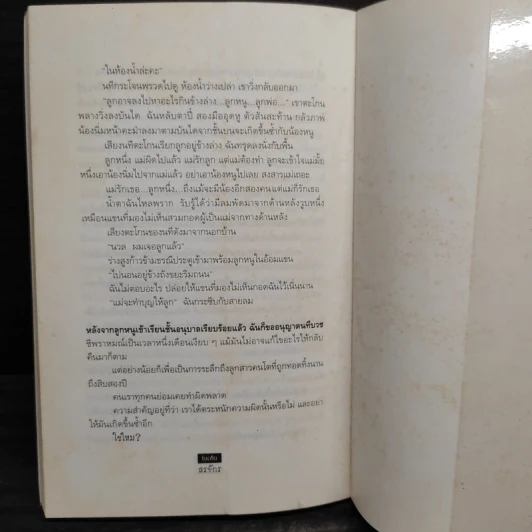 "ในห้องน้ำล่ะคะ"
นทีกระโจนพรวดไปดู ห้องน้ำว่างเปล่า เขาวิ่งกลับออกมา
"ลูกอาจลงไปหาอะไรกินข้างล่าง ...ลูกหนู ...ลูกพ่อ..." เขาตะโกน
พลางวิ่งลงบันได ฉันหลับตาปี๋ สองมืออุดหู ตัวสั่นสะท้าน กลัวภาพ
น้องนิ่มหน้าคะมำลงมาตามบันไดจากชั้นบนจะเกิดขึ้นซ้ำกับน้องหนู
เสียงนทีตะโกนเรียกลูกอยู่ข้างล่าง ฉันทรุดลงนั่งกับพื้น
ลูกหนึ่ง แม่ผิดไปแล้ว แม่รักลูก แต่แม่ต้องทำ ลูกจะเข้าใจแม่มั้ย
หนึ่งเอาน้องนิ่มไปจากแม่แล้ว อย่าเอาน้องหนูไปเลย สงสารแม่เถอะ
แม่รักเธอ ...ลูกหนึ่ง ...ถึงแม้จะมีน้องอีกสองคนแต่แม่ก็รักเธอ
น้ำตาฉันไหลพราก รับรู้ได้ว่ามีลมพัดมาจากด้านหลังวูบหนึ่ง
เหมือนแขนที่มองไม่เห็นสวมกอดผู้เป็นแม่จากทางด้านหลัง
เสียงตะโกนของนทีดังมาจากนอกบ้าน
"นวล ผมเจอลูกแล้ว"
ร่างสูงก้าวข้ามธรณีประตูเข้ามาพร้อมลูกหนูในอ้อมแขน
"ไปนอนอยู่ข้างถังขยะริมถนน"
ฉันไม่ตอบอะไร ปล่อยให้แขนที่มองไม่เห็นกอดฉันไว้เนิ่นนาน
"แม่จะทำบุญให้ลูก" ฉันกระซิบกับสายลม
หลังจากลูกหนูเข้าเรียนชั้นอนุบาลเรียบร้อยแล้ว ฉันก็ขออนุญาตนทีบวช
ชีพราหมณ์เป็นเวลาหนึ่งเดือนเงียบ ๆ แม้มันไม่อาจแก้ไขอะไรให้กลับ
คืนมาก็ตาม
แต่อย่างน้อยก็เพื่อเป็นการระลึกถึงลูกสาวคนโตที่ถูกทอดทิ้งนาน
ถึงสิบสองปี
คนเราทุกคนย่อมเคยทำผิดพลาด
ความสำคัญอยู่ที่ว่า เราได้ตระหนักความผิดนั้นหรือไม่ และอย่า
ให้มันเกิดขึ้นซ้ำอีก
ใช่ไหม?
สรจักร